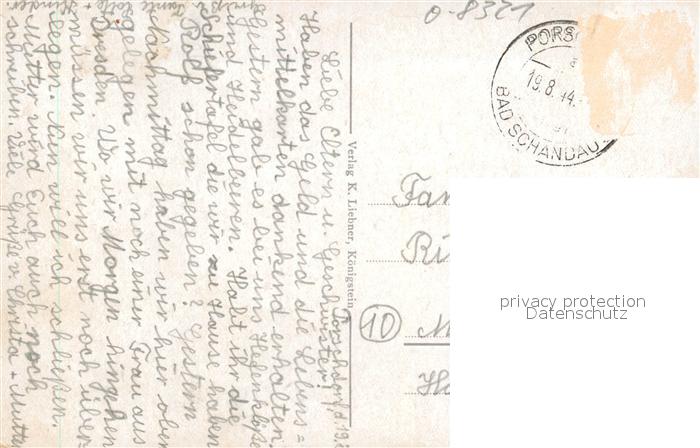 Porschdorf, d. 19.
Liebe Eltern u. Geschwister!
Haben das Geld und die Lebens=
mittelkarten dankend erhalten.
Gestern gab es bei uns Hefenklöße
und Heidelbeeren. Habt ihr die
Schiefertafel die wir zu Hause haben
Rolf schon gegeben? Gestern
Nachmittag haben wir hier oben
gelegen mit noch einer Frau aus
Dresden. Wo wir Morgen hingehen
müssen wir uns erst noch über
legen. Nun will ich schließen.
Mutter wird Euch auch noch
schreiben. Viele Grüße v. Christa + Mutter
Tante Lotte + Kinder.
Verlag K. Liebner, Königstein
O-8321
PORSC
19.8.44.
BAD SCHANDAU
Fam
Ri
10
privacy protection
Datenschutz